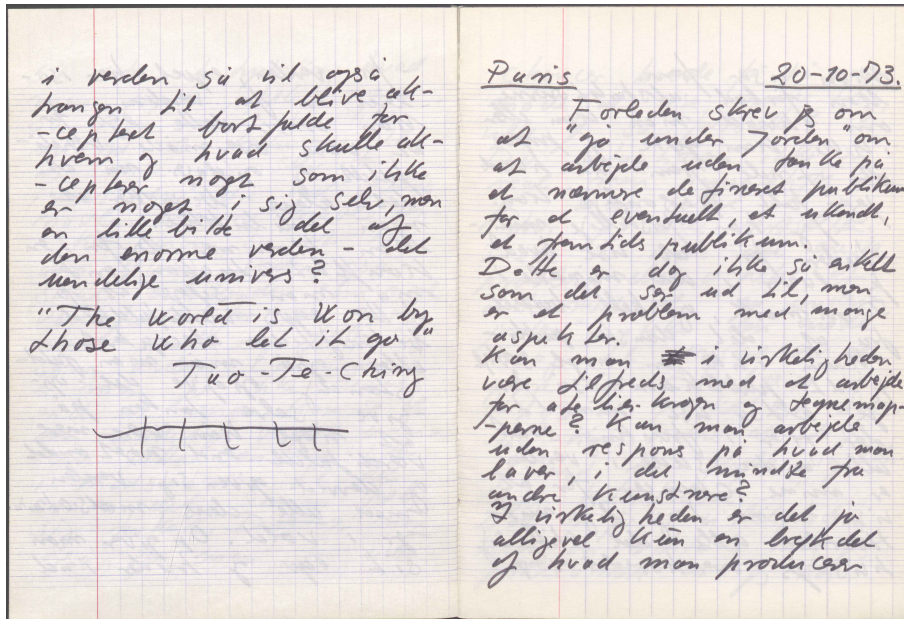 i verden så vil også
trangen til at blive ak-
-cepteret bortfalde for
hvem og hvad skulle ak-
-ceptere noget som ikke
er noget i sig selv, men
en lille bitte del af
den enorme verden - det
uendelige univers?
"The World is won by
those who let it go"
Tao-Te-Ching
Paris 20-10-73.
Forleden skrev jeg om
at "gå under jorden" om
at arbejde uden tanke på
et nærmere defineret publikum
for et eventuelt, et ukendt,
et fremtids publikum.
Dette er dog ikke så enkelt
som det ser ud til, men
er et problem med mange
aspekter.
Kan man i virkeligheden
være tilfreds med at arbejde
for atelier-krogen og tegnemap-
-perne? Kan man arbejde
uden respons på hvad man
laver, i det mindste fra
andre kunstnere?
I virkeligheden er det jo
alligevel kun en brøkdel
af hvad man producerer